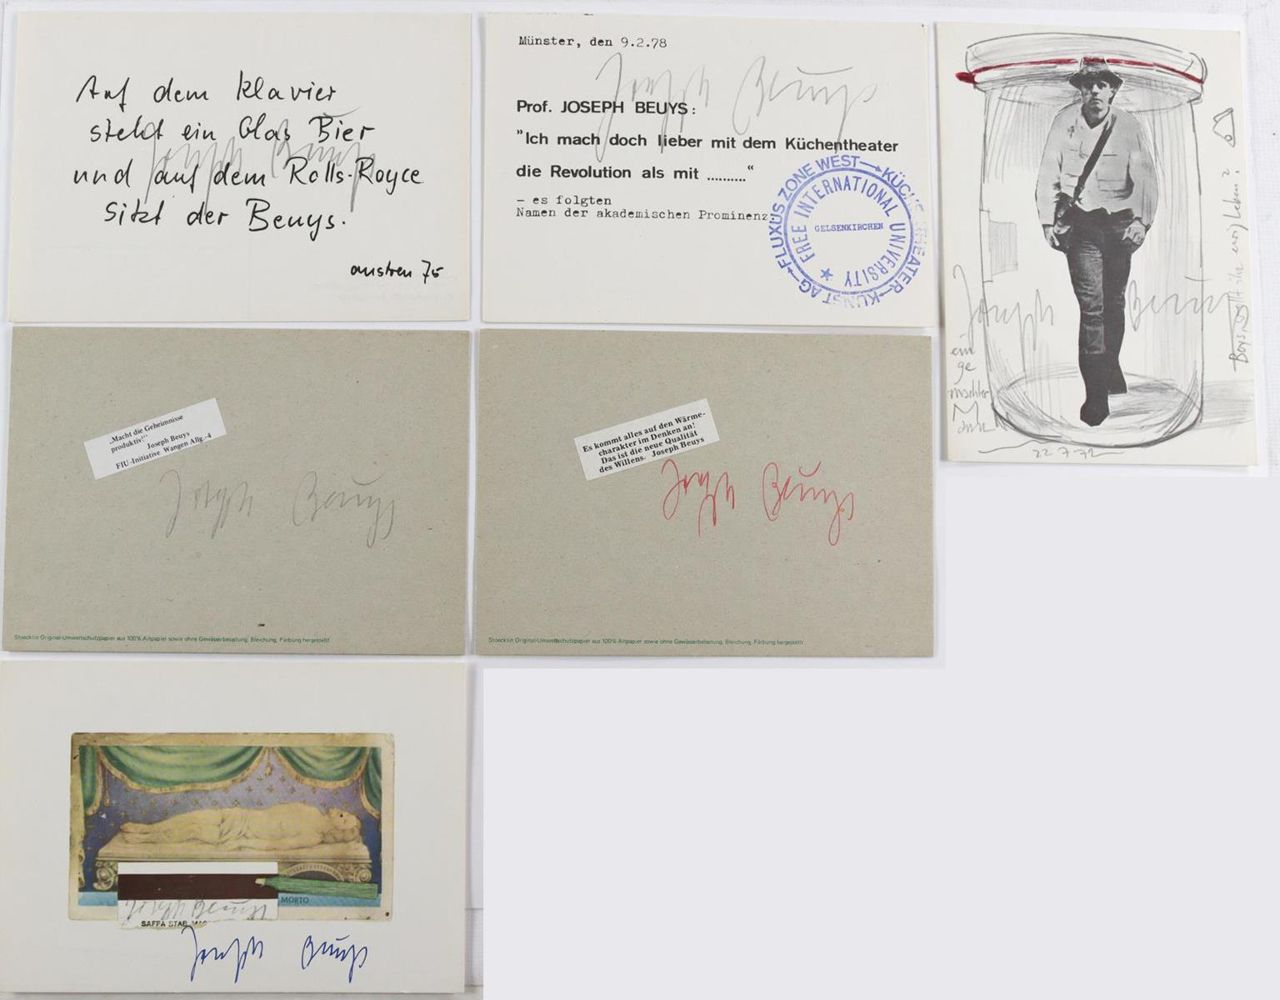 Auf dem Klavier
steht ein Glas Bier
und auf dem Rolls-Royce
sitzt der Beuys.
Joseph Beuys
anstren 75
Münster, den 9.2.78
Joseph Beuys
Prof. JOSEPH BEUYS:
"Ich mach doch lieber mit dem Küchentheater
die Revolution als mit .........."
- es folgten
Namen der akademischen Prominenz
FLUXUS ZONE WEST KÜCHENTHEATER KUNST AG
FREE INTERNATIONAL UNIVERSITY
GELSENKIRCHEN
Joseph Beuys
ein
ge
machter
Mann
Boys, wollt ihr ewig leben?
22-7-72
„Macht die Geheimnisse
produktiv!"
Joseph Beuys
FIU-Initiative Wangen Allg.-4
Joseph Beuys
Stoecklin Original-Umweltschutzpapier aus 100% Altpapier sowie ohne Gewässerbelastung, Bleichung, Färbung hergestellt
Es kommt alles auf den Wärme-
charakter im Denken an!
Das ist die neue Qualität
des Willens. Joseph Beuys
Joseph Beuys
Stoecklin Original-Umweltschutzpapier aus 100% Altpapier sowie ohne Gewässerbelastung, Bleichung, Färbung hergestellt
MORTO
Joseph Beuys
SAFFA STAB.
Joseph Beuys